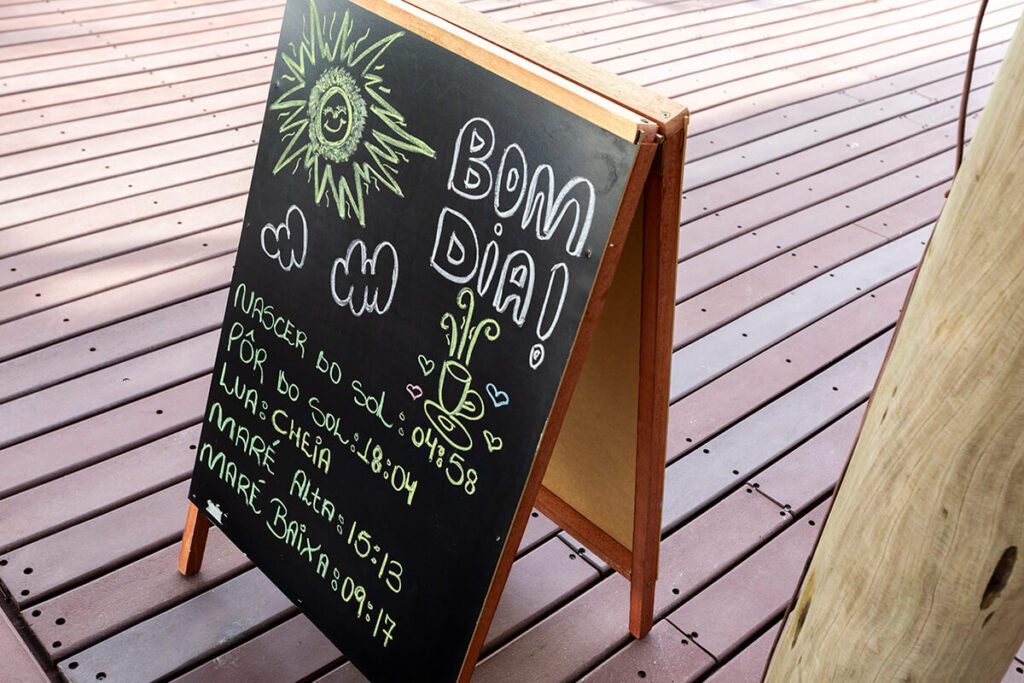 BOM
DIA!
NASCER DO SOL: 04:58
PÔR DO SOL: 18:04
LUA: CHEIA
MARÉ ALTA: 15:13
MARÉ BAIXA: 09:17